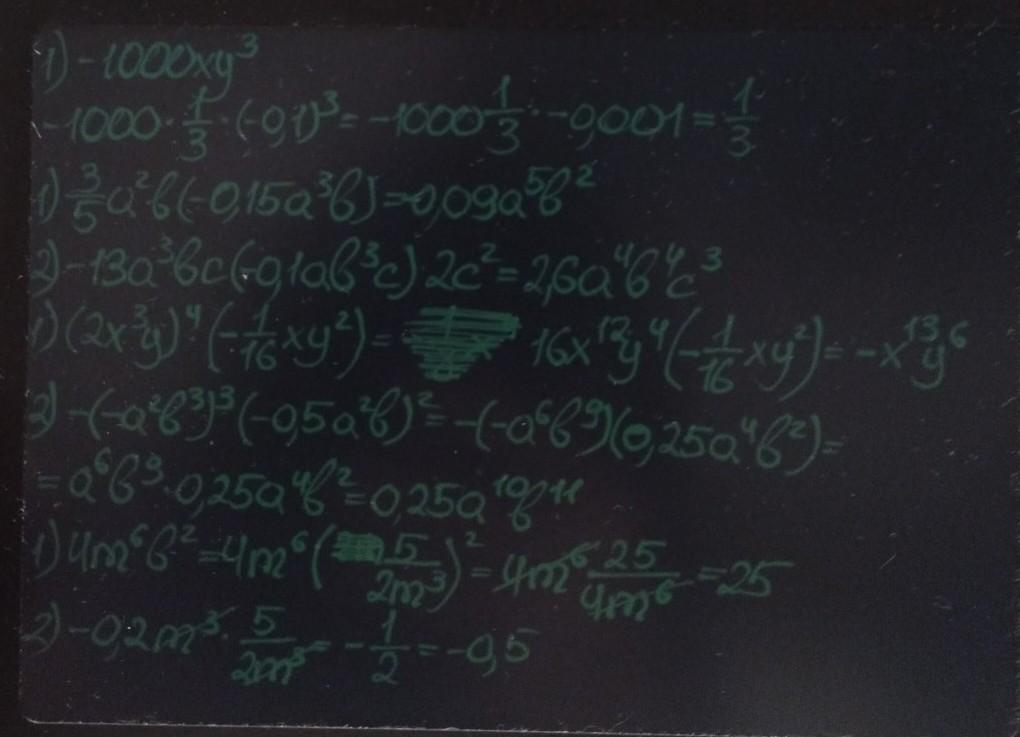 1) -1000xy³
-1000 · 1/3 · (-0,1)³ = -1000 1/3 · -0,001 = 1/3
1) 3/5 a²b(-0,15a³b) = -0,09a⁵b²
2) -13a³bc(-0,1ab³c) · 2c² = 2,6a⁴b⁴c³
1) (2x³y)⁴ · (-1/16 xy²) = 16x¹²y⁴(-1/16 xy²) = -x¹³y⁶
2) -(-a²b³)³(-0,5a²b)² = -(-a⁶b⁹)(0,25a⁴b²) =
= a⁶b⁹ · 0,25a⁴b² = 0,25a¹⁰b¹¹
1) 4m⁶b² = 4m⁶(5/2m³)² = 4m⁶ 25/4m⁶ = 25
2) -0,2m³ · 5/2m³ = -1/2 = -0,5